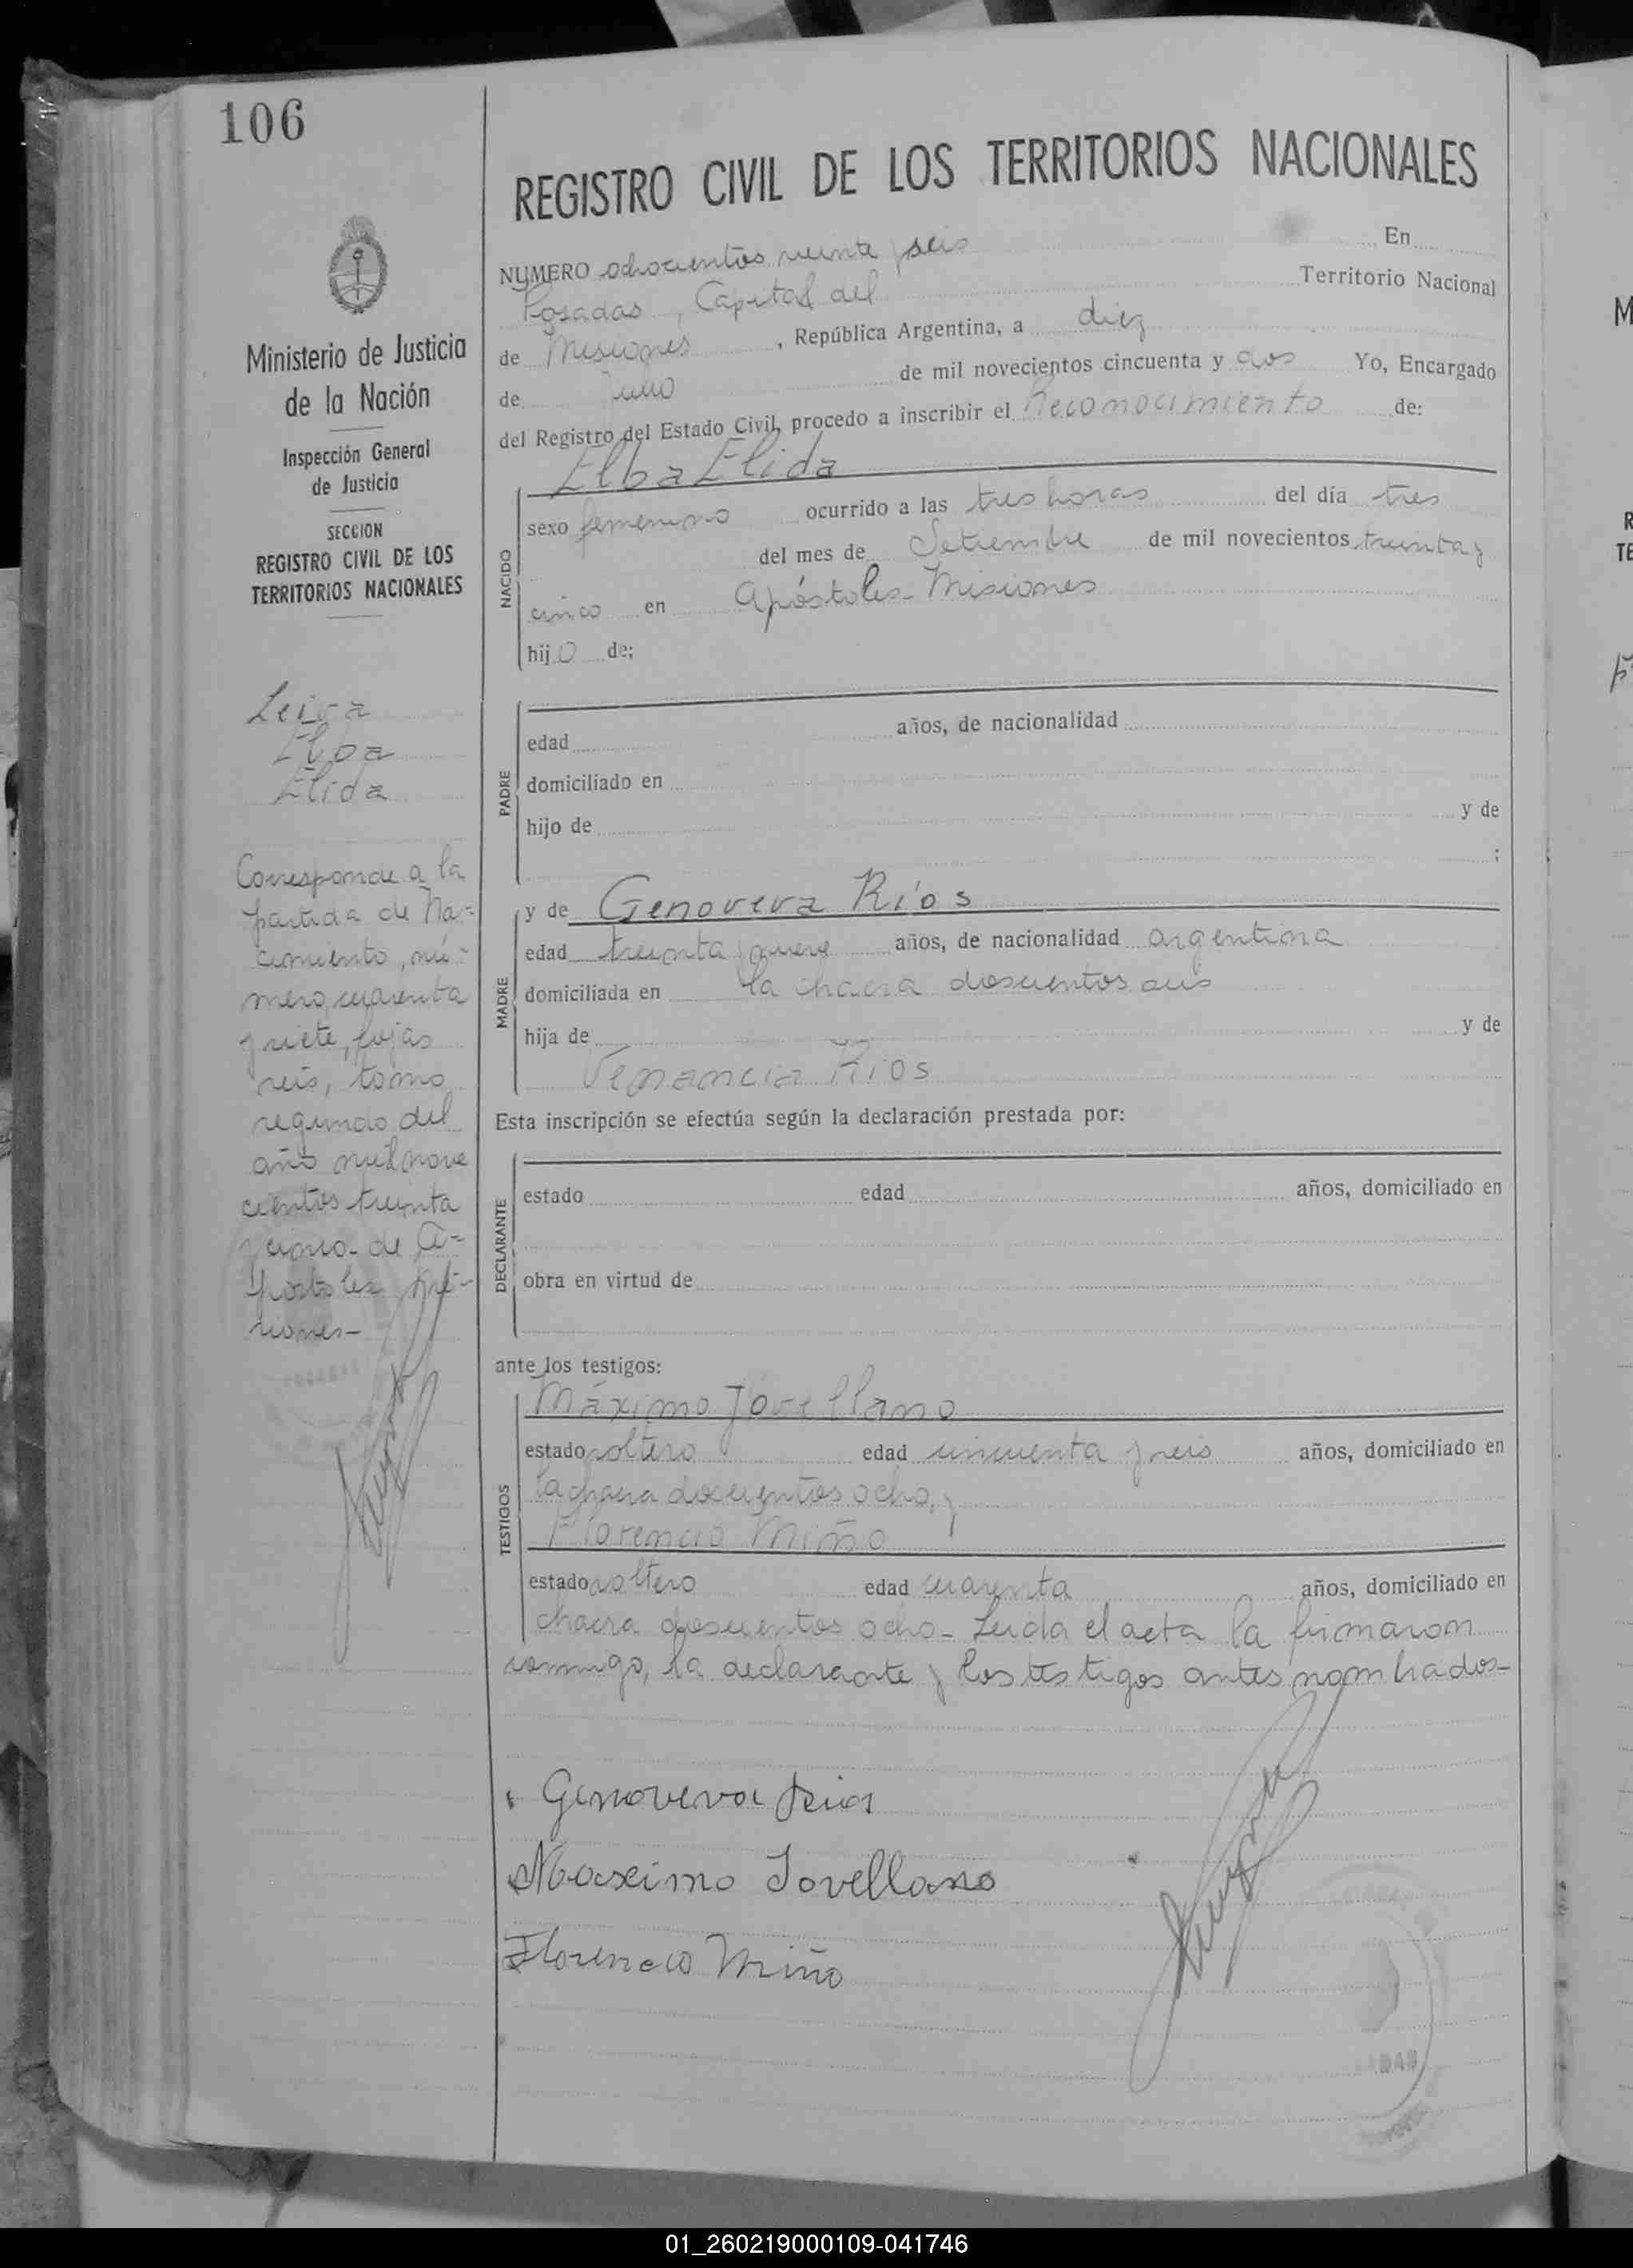 106
REGISTRO CIVIL DE LOS TERRITORIOS NACIONALES
Ministerio de Justicia
de la Nación
Inspección General
de Justicia
SECCION
REGISTRO CIVIL DE LOS
TERRITORIOS NACIONALES
Leiva
Elba
Elida
Corresponde a la
partida de Na-
cimiento, nú-
mero, cuarenta
y siete, fojas
seis, tomo
segundo del
año mil nove
cientos treinta
y cinco - de A-
póstoles Mi-
siones-
NUMERO ochocientos veinte y seis En
Posadas, Capital del Territorio Nacional
de Misiones, República Argentina, a diez
de Julio de mil novecientos cincuenta y dos Yo, Encargado
del Registro del Estado Civil, procedo a inscribir el Reconocimiento de:
Elba Elida
NACIDO
sexo femenino ocurrido a las tres horas del día tres
del mes de Setiembre de mil novecientos treinta y
cinco en Apóstoles-Misiones
hijo de:
PADRE
edad años, de nacionalidad
domiciliado en
hijo de y de
;
MADRE
y de Genoveva Ríos
edad treinta y nueve años, de nacionalidad argentina
domiciliada en la chacra doscientos seis
hija de y de
Venancia Rios
Esta inscripción se efectúa según la declaración prestada por:
DECLARANTE
estado edad años, domiciliado en
obra en virtud de
ante los testigos:
TESTIGOS
Máximo Jovellano
estado soltero edad cincuenta y seis años, domiciliado en
la chacra doscientos ocho, y
Florencio Miño
estado soltero edad cuarenta años, domiciliado en
chacra doscientos ocho - Leida el acta la firmaron
conmigo, la declarante y los testigos antes nombrados-
Genoveva Rios
Maximo Jovellano
Florencio Miño
01_260219000109-041746